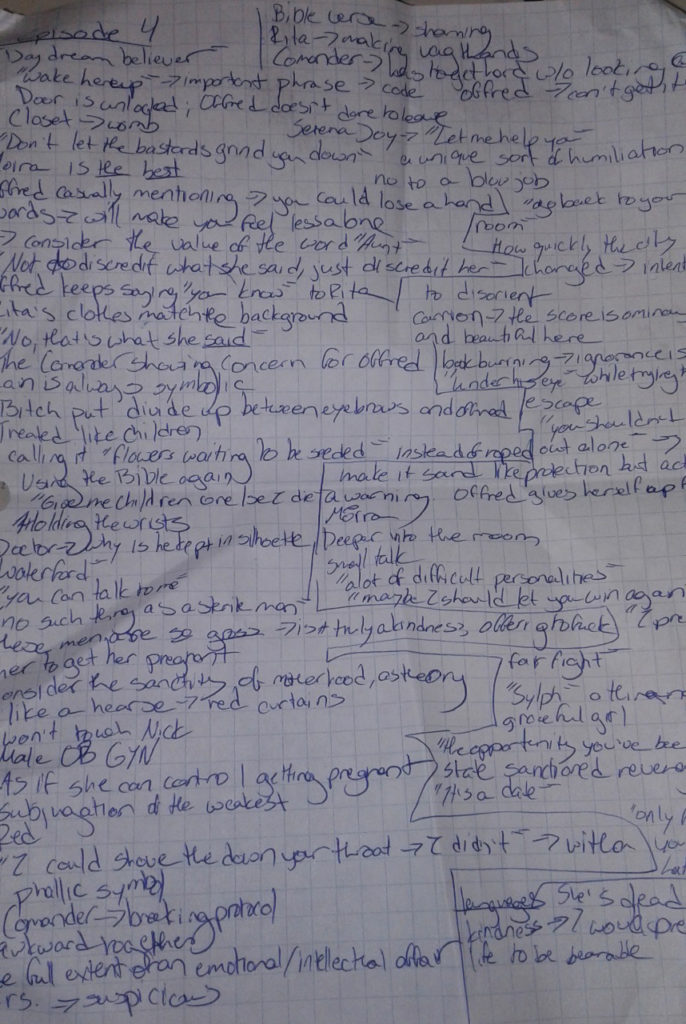 episode 4
Bible verse → shaming
Rita → making
Day dream believer
Comander → has to get hard w/o looking @
"Wake her up" → important phrase → code
offred → can't get it
Door is unlocked; Offred doesn't dare to leave
Closet → womb
Serena Joy → "Let me help you"
"Don't let the bastards grind you down"
a unique sort of humiliation
Moira is the best
no to a blow job
offred casually mentioning → you could lose a hand
"go back to your
words → will make you feel less alone
room"
→ consider the value of the word "Aunt"
How quickly the city
"Not to discredit what she said, just discredit her"
changed → intent
offred keeps saying "you know" to Rita
to disorient
Rita's clothes match the background
carrion → the score is ominous
"No, that's what she said"
and beautiful here
The Comander showing concern for offred
book burning → ignorance is
an is always symbolic
"under his eye" while trying t
Bitch put divide up between eyebrows and offred
escape
Treated like children
"you shouldn't
calling it "flowers waiting to be seeded" instead of raped
out alone" →
Using the Bible again
make it sound like protection but act
"Give me children or else I die"
a warning. Offred gives herself up f
Holding the wrists
Moira
Doctor → why is he kept in silhoette
Deeper into the room
Waterford"
small talk
"you can talk to me"
"alot of difficult personalities"
no such thing as a sterile man"
"maybe I should let you win again
these men are so gross → isn't truly a kindness, offering to fuck
"I pre
her to get her pregnant
consider the sanctity of motherhood, as theory
far fight"
like a hearse → red curtains
"Sylph"
won't touch Nick
graceful girl
Male OB GYN
"the opportunity you've bee
As if she can control getting pregnant
state sanctioned
subjugation of the weakest
"It's a date"
Red
"only
"I could shove the down your throat → I didn't" →
you
phallic symbol
languages
She's dead
Comander → breaking protocol
kindness → I would pre
awkward together
life to be bearable
e full extent of an emotional/intellectual affair
rs. → suspicious